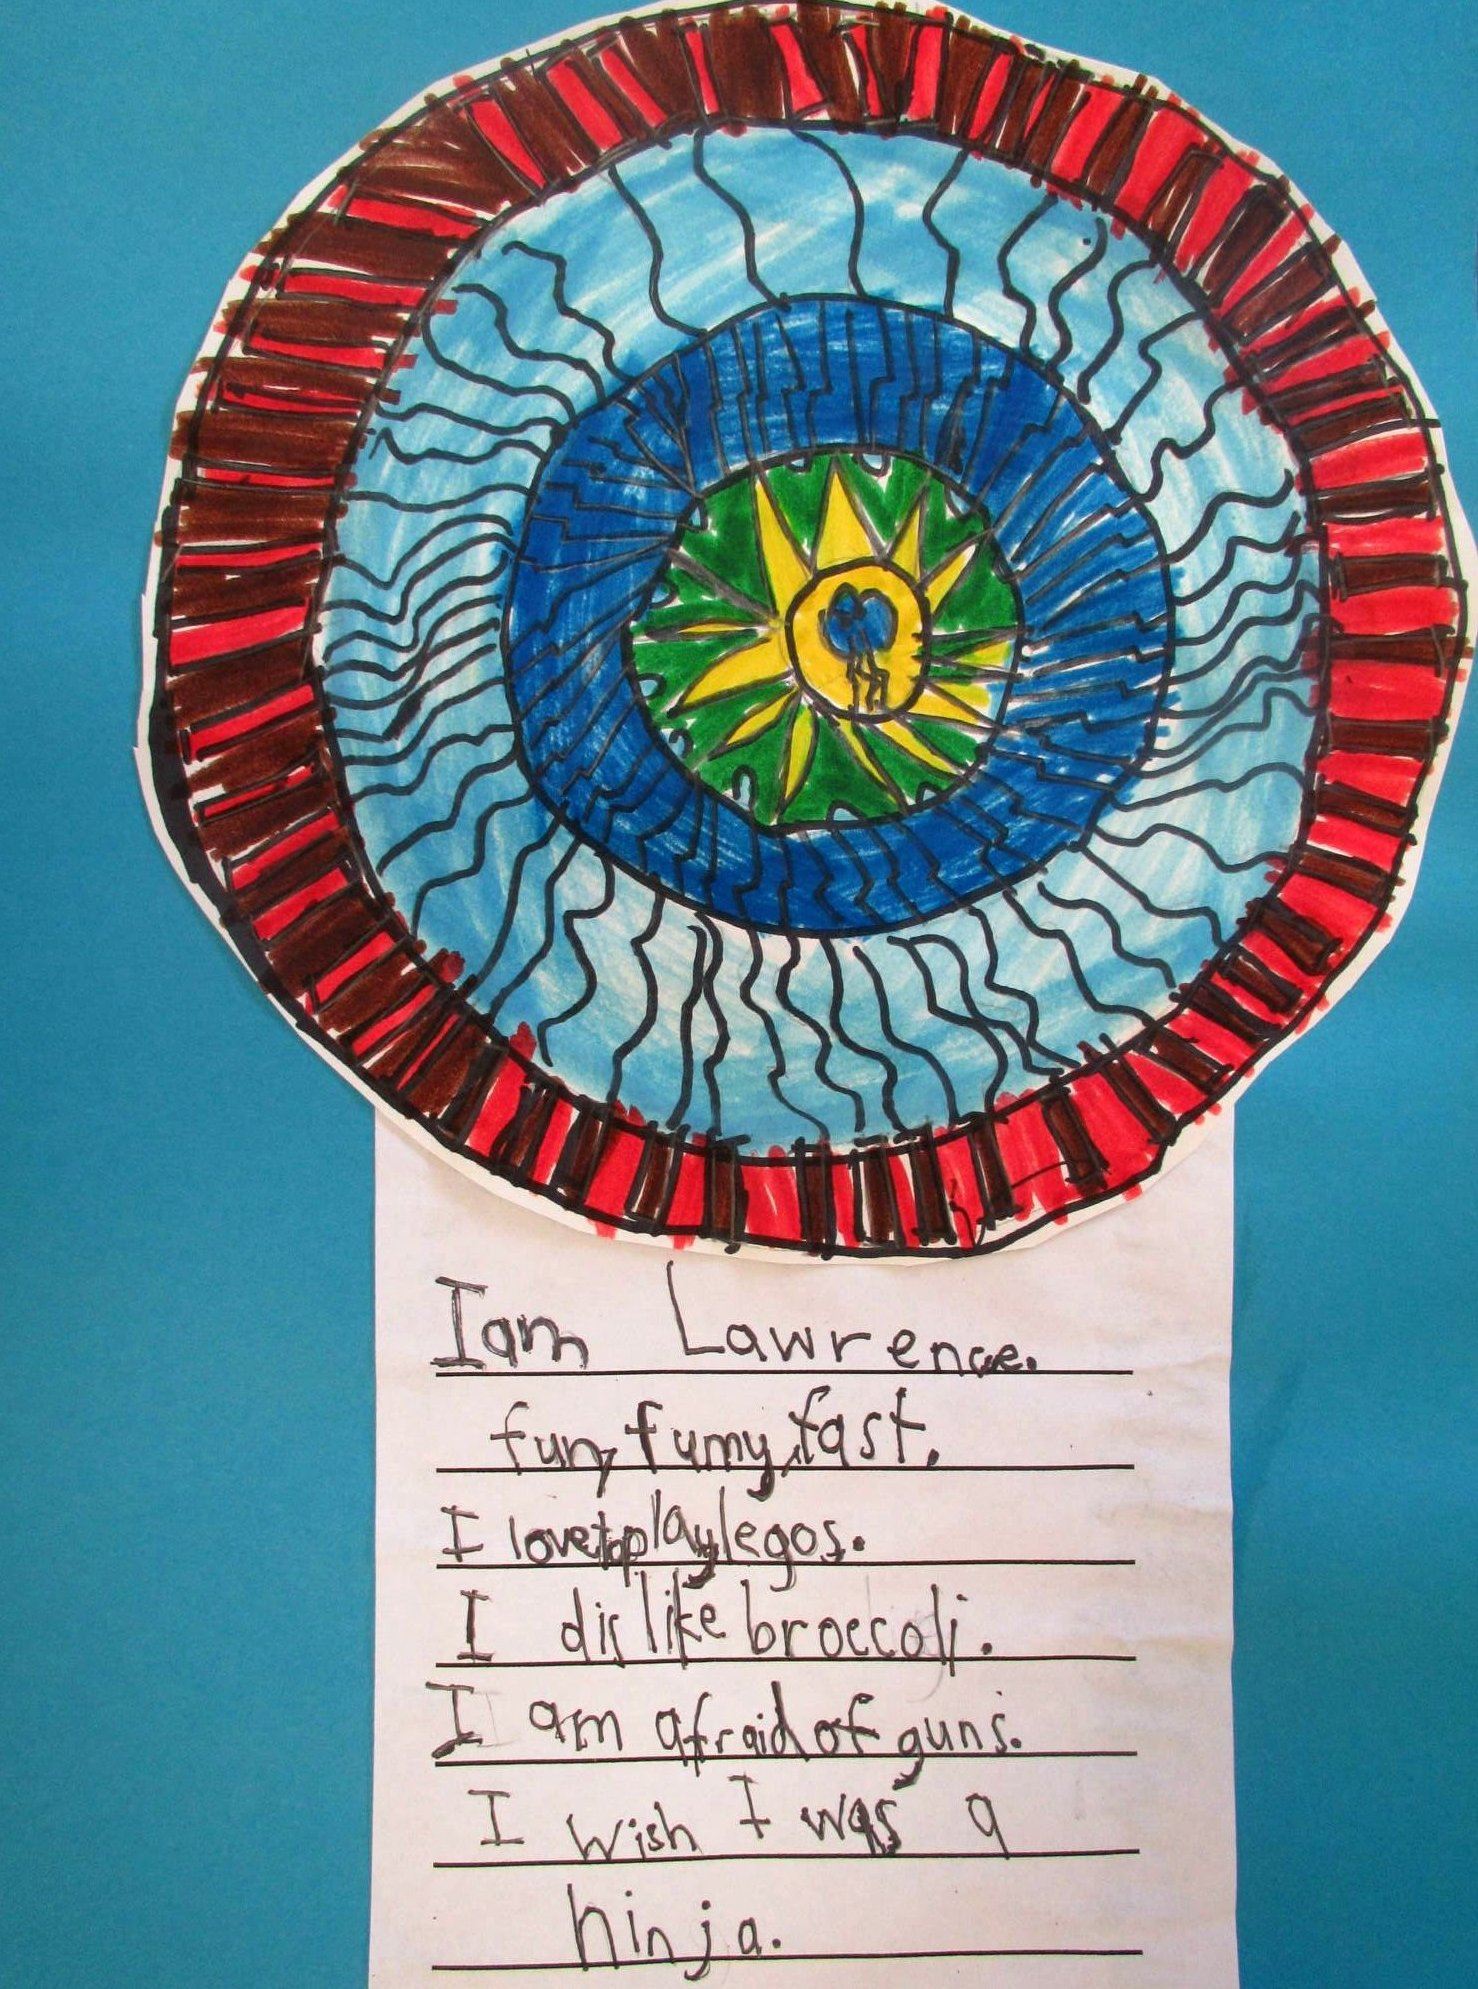 I am Lawrence.
fun, fumy, fast.
I love to play legos.
I dislike broccoli.
I am afraid of guns.
I wish I was a
ninja.